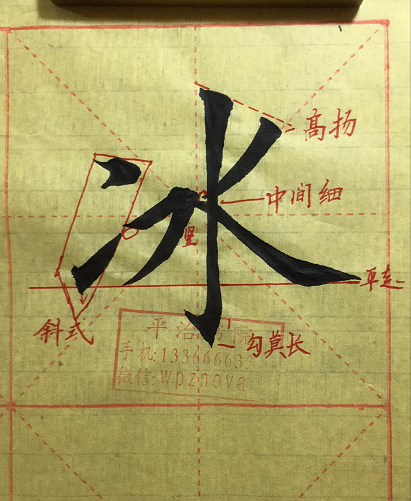 冰
高扬
中间细
竖
斜式
勾莫长
平治
手机:13366663
微信:wpznova